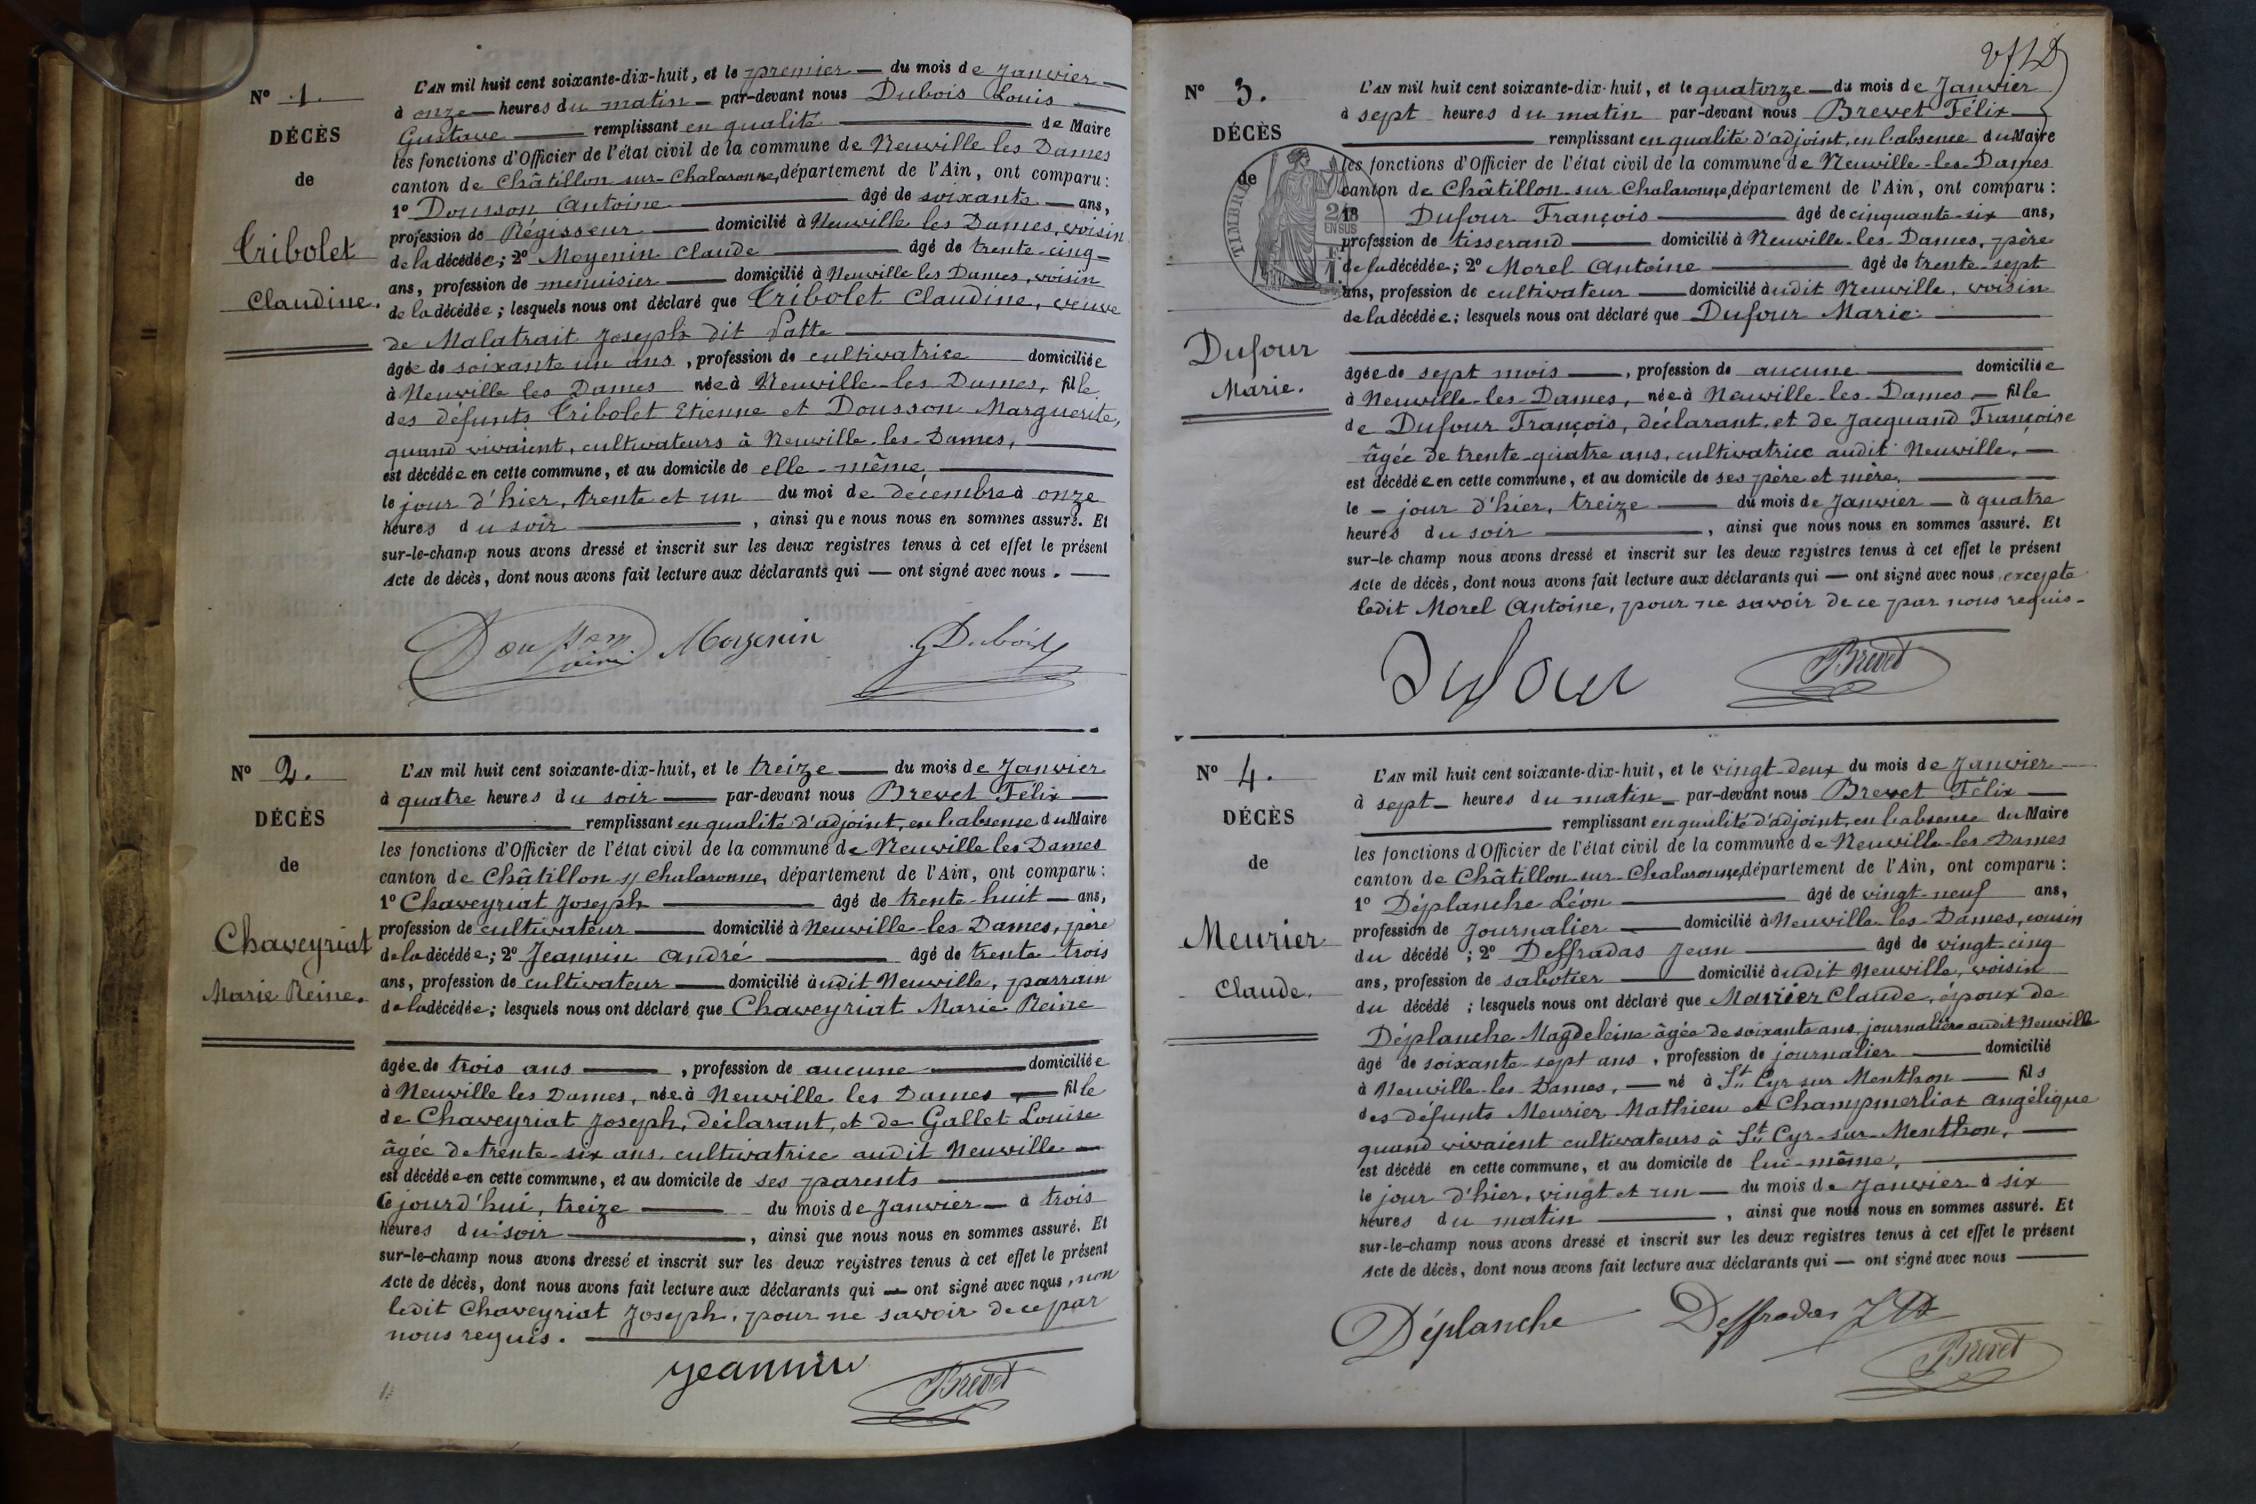 N° 1.
DÉCÈS
de
Tribolet
Claudine.
L'AN mil huit cent soixante-dix-huit, et le premier — du mois de Janvier —
à onze — heures du matin — par-devant nous Dubois Louis —
Gustave — remplissant en qualité — de Maire
les fonctions d'Officier de l'état civil de la commune de Neuville les Dames
canton de Châtillon-sur-Chalaronne, département de l'Ain, ont comparu :
1° Dousson Antoine — âgé de soixante — ans,
profession de Régisseur — domicilié à Neuville les Dames, voisin
de la décédée; 2° Moyenin Claude — âgé de trente-cinq —
ans, profession de menuisier — domicilié à Neuville les Dames, voisin
de la décédée ; lesquels nous ont déclaré que Tribolet Claudine, veuve
de Malatrait Joseph dit Patte —
âgée de soixante un ans , profession de cultivatrice domiciliée
à Neuville les Dames née à Neuville-les-Dames, fille
des défunts Tribolet Etienne et Dousson Marguerite,
quand vivaient, cultivateurs à Neuville-les-Dames, —
est décédée en cette commune, et au domicile de elle-même —
le jour d'hier, trente et un du moi de décembre à onze
heures du soir — , ainsi que nous nous en sommes assuré. Et
sur-le-champ nous avons dressé et inscrit sur les deux registres tenus à cet effet le présent
Acte de décès, dont nous avons fait lecture aux déclarants qui — ont signé avec nous . —
Dousson Moyenin G Dubois
N° 2.
DÉCÈS
de
Chaveyriat
Marie Reine.
L'AN mil huit cent soixante-dix-huit, et le treize — du mois de Janvier
à quatre heures du soir — par-devant nous Brevet Félix —
— remplissant en qualité d'adjoint, en l'absence du Maire
les fonctions d'Officier de l'état civil de la commune de Neuville les Dames
canton de Châtillon s/ Chalaronne, département de l'Ain, ont comparu :
1° Chaveyriat Joseph — âgé de trente-huit — ans,
profession de cultivateur — domicilié à Neuville-les-Dames, père
de la décédée; 2° Jeannin André — âgé de trente-trois
ans, profession de cultivateur — domicilié audit Neuville, parrain
de la décédée; lesquels nous ont déclaré que Chaveyriat Marie Reine
âgée de trois ans — , profession de aucune — domiciliée
à Neuville les Dames, née à Neuville les Dames — fille
de Chaveyriat Joseph, déclarant, et de Gallet Louise
âgée de trente-six ans, cultivatrice audit Neuville —
est décédée en cette commune, et au domicile de ses parents —
Ce jourd'hui, treize — du mois de Janvier — à trois
heures du soir — , ainsi que nous nous en sommes assuré. Et
sur-le-champ nous avons dressé et inscrit sur les deux registres tenus à cet effet le présent
Acte de décès, dont nous avons fait lecture aux déclarants qui — ont signé avec nous, non
ledit Chaveyriat Joseph, pour ne savoir de ce par
nous requis. —
Jeannin Brevet
N° 3.
DÉCÈS
de
TIMBRE
Dufour
Marie.
L'AN mil huit cent soixante-dix-huit, et le quatorze — du mois de Janvier
à sept heures du matin par-devant nous Brevet Félix —
— remplissant en qualité d'adjoint, en l'absence du Maire
les fonctions d'Officier de l'état civil de la commune de Neuville-les-Dames
canton de Châtillon-sur-Chalaronne, département de l'Ain, ont comparu :
1° Dufour François — âgé de cinquante-six ans,
profession de tisserand — domicilié à Neuville-les-Dames, père
de la décédée ; 2° Morel Antoine — âgé de trente-sept
ans, profession de cultivateur — domicilié audit Neuville, voisin
de la décédée ; lesquels nous ont déclaré que Dufour Marie —
âgée de sept mois — , profession de aucune — domiciliée
à Neuville-les-Dames, née à Neuville-les-Dames — fille
de Dufour François, déclarant, et de Jacquand Françoise
âgée de trente-quatre ans, cultivatrice audit Neuville, —
est décédée en cette commune, et au domicile de ses père et mère, —
le — jour d'hier, treize — du mois de Janvier — à quatre
heures du soir — , ainsi que nous nous en sommes assuré. Et
sur-le-champ nous avons dressé et inscrit sur les deux registres tenus à cet effet le présent
Acte de décès, dont nous avons fait lecture aux déclarants qui — ont signé avec nous, excepte
ledit Morel Antoine, pour ne savoir de ce par nous requis-
Dufour Brevet
N° 4.
DÉCÈS
de
Meurier
Claude.
L'AN mil huit cent soixante-dix-huit, et le vingt-deux du mois de Janvier —
à sept — heures du matin — par-devant nous Brevet Félix —
— remplissant en qualité d'adjoint, en l'absence du Maire
les fonctions d'Officier de l'état civil de la commune de Neuville-les-Dames
canton de Châtillon-sur-Chalaronne, département de l'Ain, ont comparu :
1° Déplanche Léon — âgé de vingt-neuf ans,
profession de journalier — domicilié à Neuville-les-Dames, cousin
du décédé ; 2° Deffradas Jean — âgé de vingt-cinq
ans, profession de sabotier — domicilié audit Neuville, voisin
du décédé ; lesquels nous ont déclaré que Meurier Claude, époux de
Déplanche Magdeleine âgée de soixante ans, journalière audit Neuville
âgé de soixante sept ans , profession de journalier — domicilié
à Neuville-les-Dames, — né à St Cyr sur Menthon — fils
des défunts Meurier Mathieu et Champmerliat Angélique
quand vivaient cultivateurs à St Cyr-sur-Menthon, —
est décédé en cette commune, et au domicile de lui-même, —
le jour d'hier, vingt et un — du mois de Janvier à six
heures du matin — , ainsi que nous nous en sommes assuré. Et
sur-le-champ nous avons dressé et inscrit sur les deux registres tenus à cet effet le présent
Acte de décès, dont nous avons fait lecture aux déclarants qui — ont signé avec nous —
Déplanche Deffradas
Brevet